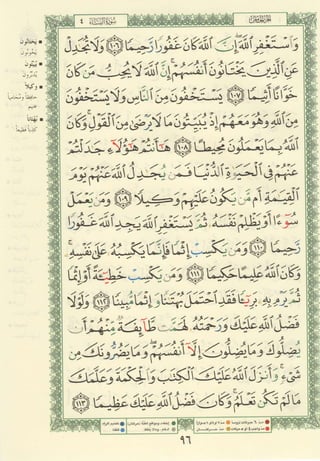 سُورَةُ النِّسَاءِ ٤
وَٱسۡتَغۡفِرِ ٱللَّهَۖ إِنَّ ٱللَّهَ كَانَ غَفُورٗا رَّحِيمٗا ١٠٦ وَلَا تُجَٰدِلۡ
عَنِ ٱلَّذِينَ يَخۡتَانُونَ أَنفُسَهُمۡۚ إِنَّ ٱللَّهَ لَا يُحِبُّ مَن كَانَ
خَوَّانًا أَثِيمٗا ١٠٧ يَسۡتَخۡفُونَ مِنَ ٱلنَّاسِ وَلَا يَسۡتَخۡفُونَ
مِنَ ٱللَّهِ وَهُوَ مَعَهُمۡ إِذۡ يُبَيِّتُونَ مَا لَا يَرۡضَىٰ مِنَ ٱلۡقَوۡلِۚ وَكَانَ
ٱللَّهُ بِمَا يَعۡمَلُونَ مُحِيطًا ١٠٨ هَٰٓأَنتُمۡ هَٰٓؤُلَآءِ جَٰدَلۡتُمۡ
عَنۡهُمۡ فِي ٱلۡحَيَوٰةِ ٱلدُّنۡيَا فَمَن يُجَٰدِلُ ٱللَّهَ عَنۡهُمۡ يَوۡمَ
ٱلۡقِيَٰمَةِ أَم مَّن يَكُونُ عَلَيۡهِمۡ وَكِيلٗا ١٠٩ وَمَن يَعۡمَلۡ
سُوٓءًا أَوۡ يَظۡلِمۡ نَفۡسَهُۥ ثُمَّ يَسۡتَغۡفِرِ ٱللَّهَ يَجِدِ ٱللَّهَ غَفُورٗا
رَّحِيمٗا ١١٠ وَمَن يَكۡسِبۡ إِثۡمٗا فَإِنَّمَا يَكۡسِبُهُۥ عَلَىٰ نَفۡسِهِۦۚ
وَكَانَ ٱللَّهُ عَلِيمًا حَكِيمٗا ١١١ وَمَن يَكۡسِبۡ خَطِيٓـَٔةً أَوۡ إِثۡمٗا
ثُمَّ يَرۡمِ بِهِۦ بَرِيٓـٔٗا فَقَدِ ٱحۡتَمَلَ بُهۡتَٰنٗا وَإِثۡمٗا مُّبِينٗا ١١٢ وَلَوۡلَا
فَضۡلُ ٱللَّهِ عَلَيۡكَ وَرَحۡمَتُهُۥ لَهَمَّت طَّآئِفَةٞ مِّنۡهُمۡ أَن
يُضِلُّوكَ وَمَا يُضِلُّونَ إِلَّآ أَنفُسَهُمۡۖ وَمَا يَضُرُّونَكَ مِن
شَيۡءٖۚ وَأَنزَلَ ٱللَّهُ عَلَيۡكَ ٱلۡكِتَٰبَ وَٱلۡحِكۡمَةَ وَعَلَّمَكَ
مَا لَمۡ تَكُن تَعۡلَمُۚ وَكَانَ فَضۡلُ ٱللَّهِ عَلَيۡكَ عَظِيمٗا ١١٣
٩٦